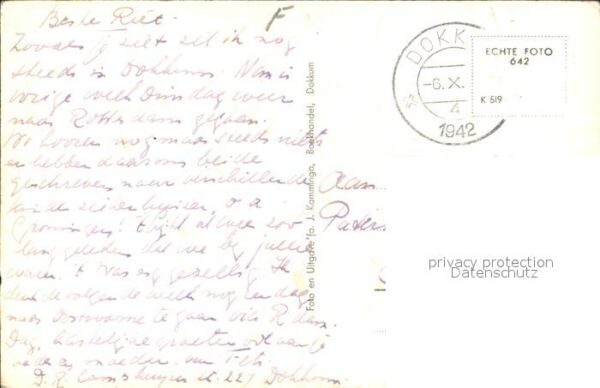 Beste Riet.
Zooals je ziet zit ik nog
steeds in Dokkum. Wim is
vorige week Dinsdag weer
naar Rotterdam gegaan.
We hooren nog maar steeds niets
en hebben daarom beide
geschreven naar verschillende
ziekenhuizen o.a.
Groningen! 't lijkt al weer zoo
lang geleden dat we bij jullie
waren. 't Was erg gezellig. Ik
denk de volgende week nog een dag
naar te gaan via R'dam.
Dag, hartelijke groeten ook aan je
vader en moeder. van
D. R. Camphuijsen st. 227 Dokkum.
F
Foto en Uitgave fa. J. Kamminga, Boekhandel, Dokkum
DOKK
-6.X.
4
1942
ECHTE FOTO
642
K 519
Aan
privacy protection
Datenschutz